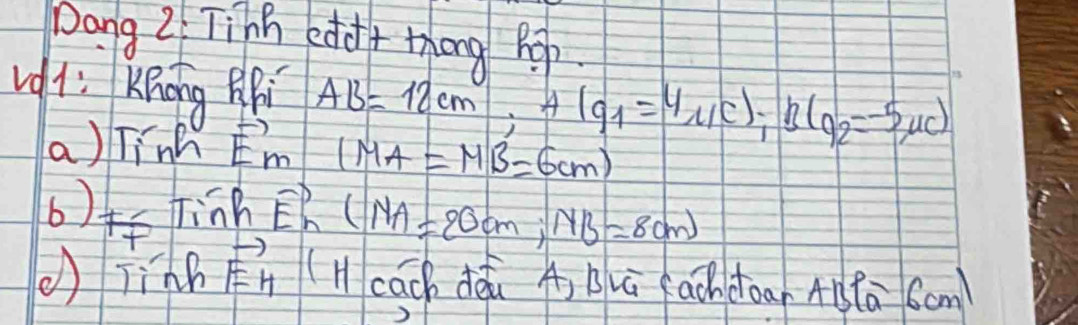 Dạng 2: Tính cđđt trong hợp.
Vd1: Không khí AB = 12cm, A(q1 = 4μC); B(q2 = -5μC)
a) Tính E⃗m (MA = MB = 6cm)
b) Tính E⃗n (NA = 20cm; NB = 8cm)
c) Tính E⃗H (H cách đều A, B và cách đoạn AB là 6cm)